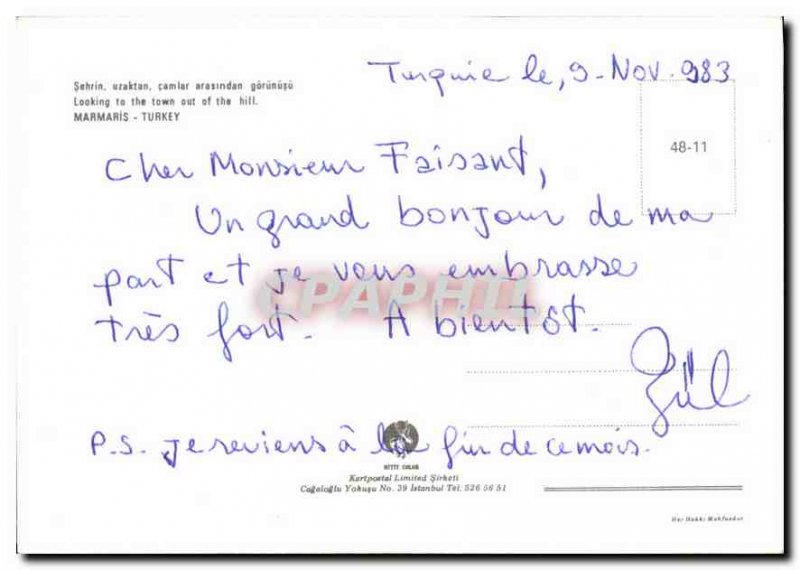 Turquie le, 9-Nov. 983
Şehrin, uzaktan, çamlar arasından görünüşü
Looking to the town out of the hill.
MARMARİS - TURKEY
48-11
Cher Monsieur Faisant,
Un grand bonjour de ma
part et je vous embrasse
très fort. A bientôt.
Gül
P.S. je reviens à la fin de ce mois.
CPAPHIL
HITIT COLOR
Kartpostal Limited Şirketi
Cağaloğlu Yokuşu No. 39 İstanbul Tel. 526 56 51
Her Hakkı Mahfuzdur